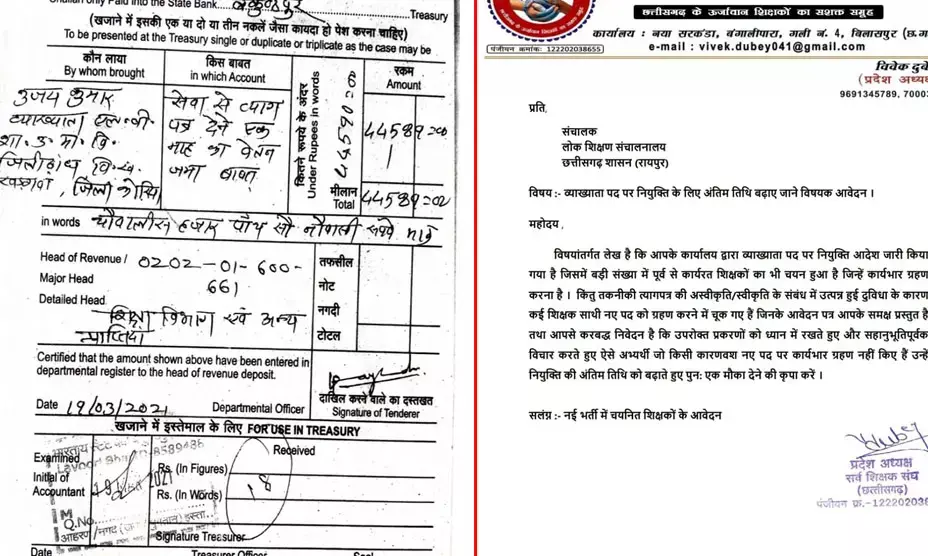 Challan only Paid into the State Bank.......... Treasury
(खजाने में इसकी एक या दो या तीन नकलें जैसा कायदा हो पेश करना चाहिए)
To be presented at the Treasury single or duplicate or triplicate as the case may be
कौन लाया
By whom brought
किस बाबत
in which Account
कितने रूपये के अंदर
Under Rupees in words
रकम
Amount
व्याख्याता एल.बी.
शा. उ. मा. वि.
सेवा से त्याग
पत्र देने एक
माह का वेतन
जमा बाबत्
44590=00
44589=00
मीलान
Total
44589=00
in words
हजार पाँच सौ नवासी रूपये मात्र
Head of Revenue /
Major Head
Detailed Head
0202-01-600-
661
शिक्षा विभाग एवं अन्य
प्राप्तियां
तफसील
नोट
नगदी
टोटल
Certified that the amount shown above have been entered in
departmental register to the head of revenue deposit.
Date 19/03/2021
Departmental Officer
दाखिल करने वाले का दस्तखत
Signature of Tenderer
खजाने में इस्तेमाल के लिए FOR USE IN TREASURY
Examined
Initial of
Accountant
Received
Rs. (In Figures)
Rs. (In Words)
Q.No.
Signature Treasurer
Date
Treasurer Officer
Seal
छत्तीसगढ़ के ऊर्जावान शिक्षकों का सशक्त समूह
कार्यालय : नया सरकंडा, बंगालीपारा, गली नं. 4, बिलासपुर (छ.ग
पंजीयन क्रमांक: 122202038655
e-mail : vivek.dubey041@gmail.com
विवेक दुबे
(प्रदेश अध्यक्ष
9691345789, 70003
प्रति,
संचालक
लोक शिक्षण संचालनालय
छत्तीसगढ़ शासन (रायपुर)
विषय :- व्याख्याता पद पर नियुक्ति के लिए अंतिम तिथि बढ़ाए जाने विषयक आवेदन ।
महोदय ,
विषयांतर्गत लेख है कि आपके कार्यालय द्वारा व्याख्याता पद पर नियुक्ति आदेश जारी किया
गया है जिसमें बड़ी संख्या में पूर्व से कार्यरत शिक्षकों का भी चयन हुआ है जिन्हें कार्यभार ग्रहण
करना है । किंतु तकनीकी त्यागपत्र की अस्वीकृति/स्वीकृति के संबंध में उत्पन्न हुई दुविधा के कारण
कई शिक्षक साथी नए पद को ग्रहण करने में चूक गए हैं जिनके आवेदन पत्र आपके समक्ष प्रस्तुत है
तथा आपसे करबद्ध निवेदन है कि उपरोक्त प्रकरणों को ध्यान में रखते हुए और सहानुभूतिपूर्वक
विचार करते हुए ऐसे अभ्यर्थी जो किसी कारणवश नए पद पर कार्यभार ग्रहण नहीं किए हैं उन्हें
नियुक्ति की अंतिम तिथि को बढ़ाते हुए पुन: एक मौका देने की कृपा करें ।
सलंग्न :- नई भर्ती में चयनित शिक्षकों के आवेदन
प्रदेश अध्यक्ष
सर्व शिक्षक संघ
(छत्तीसगढ़)
पंजीयन क्र.-1222020386